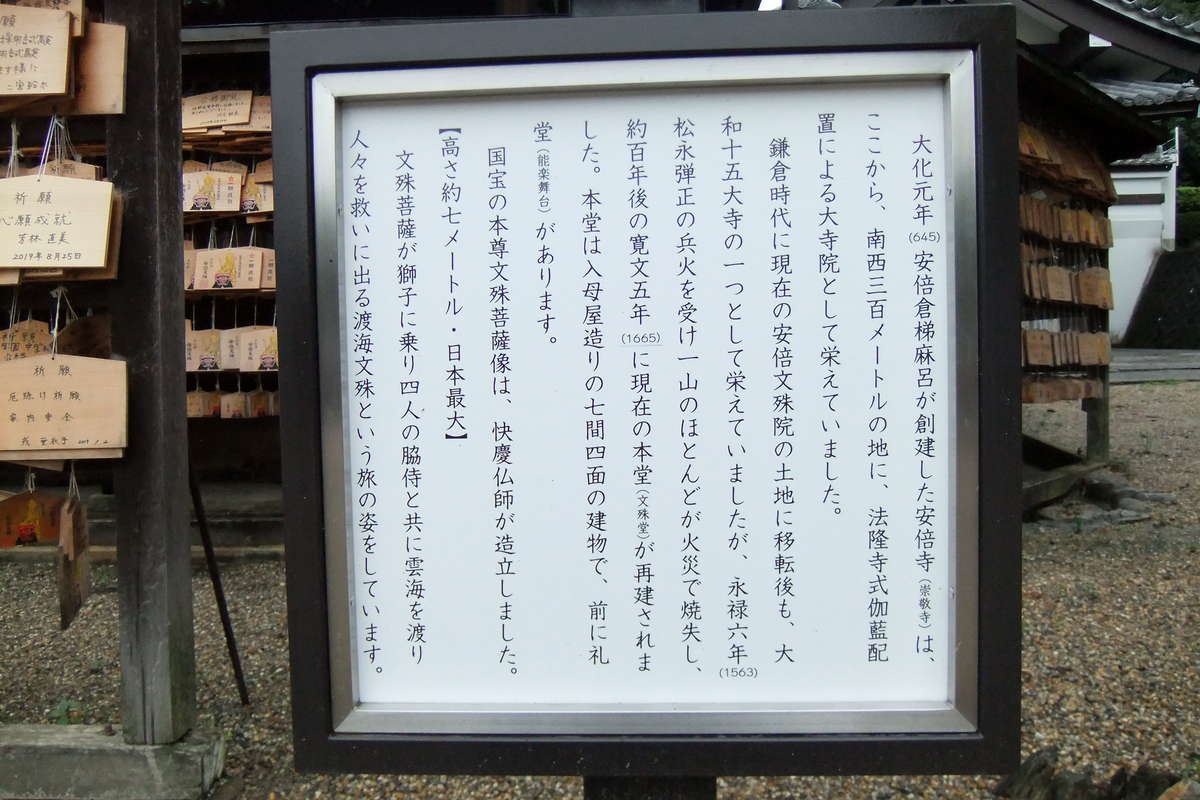 大化元年(645)安倍倉梯麻呂が創建した安倍寺(崇敬寺)は、
ここから、南西三百メートルの地に、法隆寺式伽藍配
置による大寺院として栄えていました。
鎌倉時代に現在の安倍文殊院の土地に移転後も、大
和十五大寺の一つとして栄えていましたが、永禄六年(1563)
松永弾正の兵火を受け一山のほとんどが火災で焼失し、
約百年後の寛文五年(1665)に現在の本堂(文殊堂)が再建されま
した。本堂は入母屋造りの七間四面の建物で、前に礼
堂(能楽舞台)があります。
国宝の本尊文殊菩薩像は、快慶仏師が造立しました。
【高さ約七メートル・日本最大】
文殊菩薩が獅子に乗り四人の脇侍と共に雲海を渡り
人々を救いに出る渡海文殊という旅の姿をしています。
祈願
心願成就
2019年8月25日
祈願
厄除け祈願
家内安全